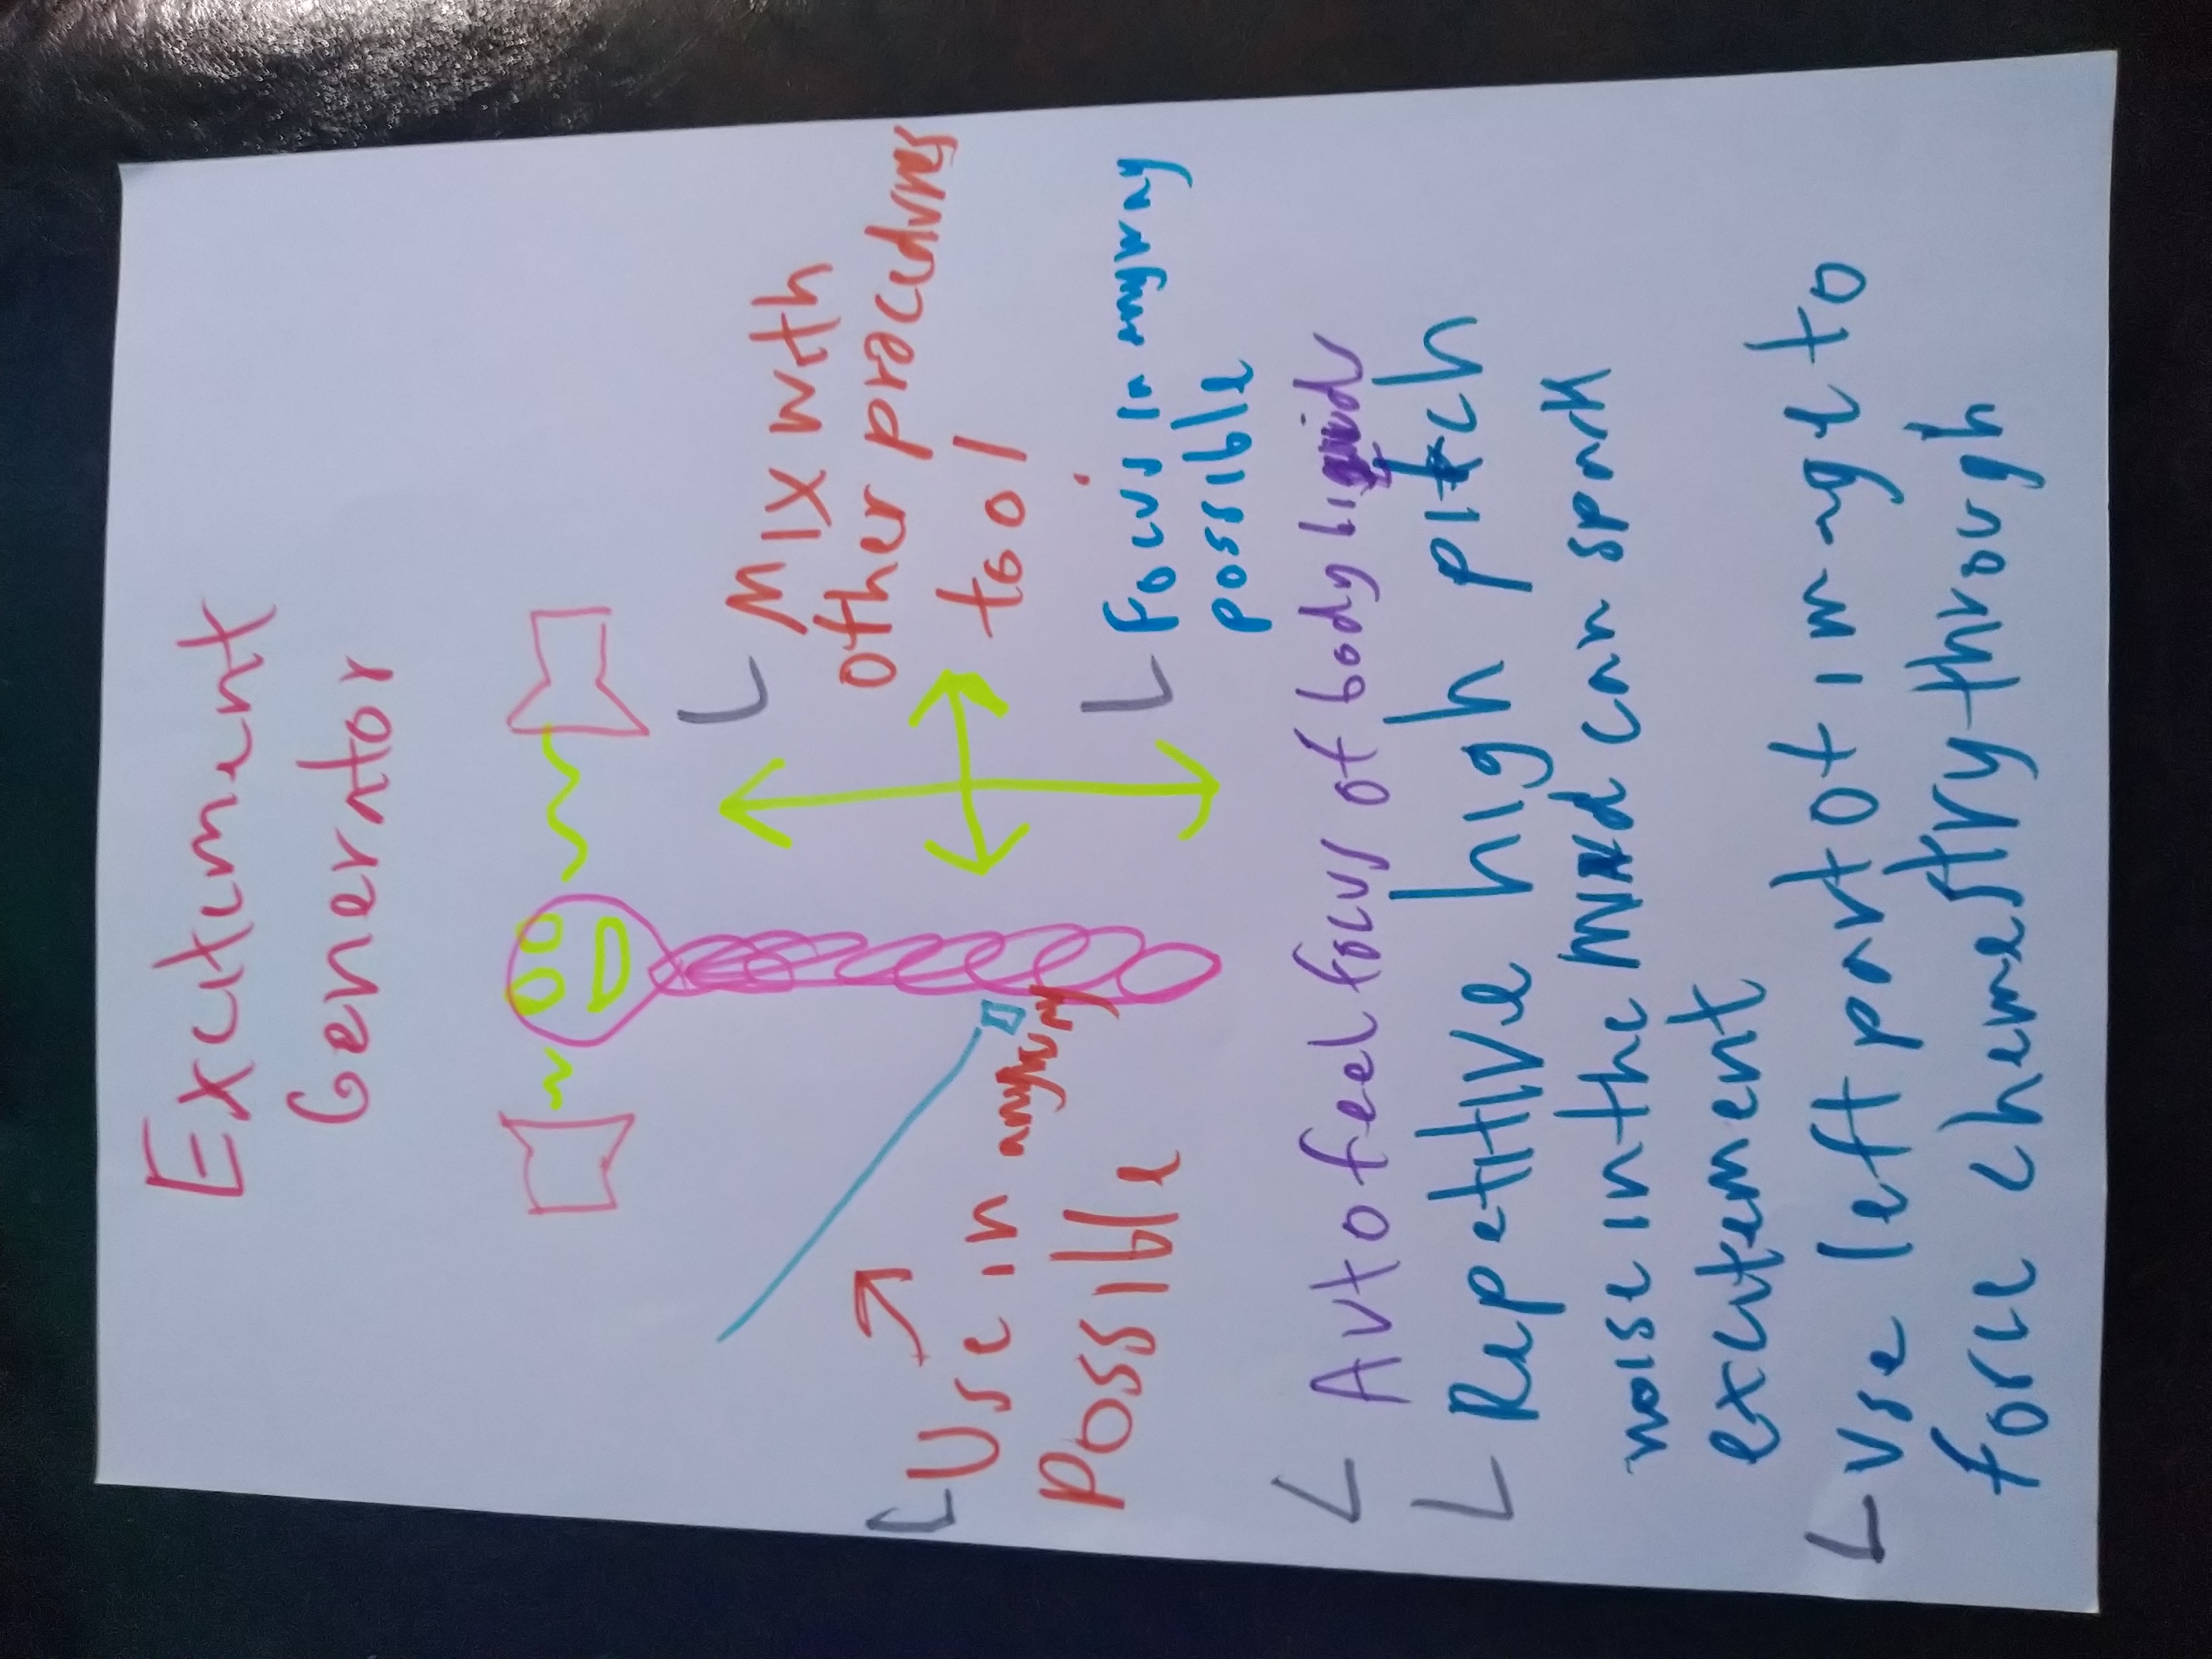 Excitement
Generator
Mix with
other procedures
too!
Use in any way
Possible
Focus in any way
possible
Auto feel focus of body liquids
Repetitive high pitch
noise in the mind can spark
excitement
Use left part of mind to
force chemestry through